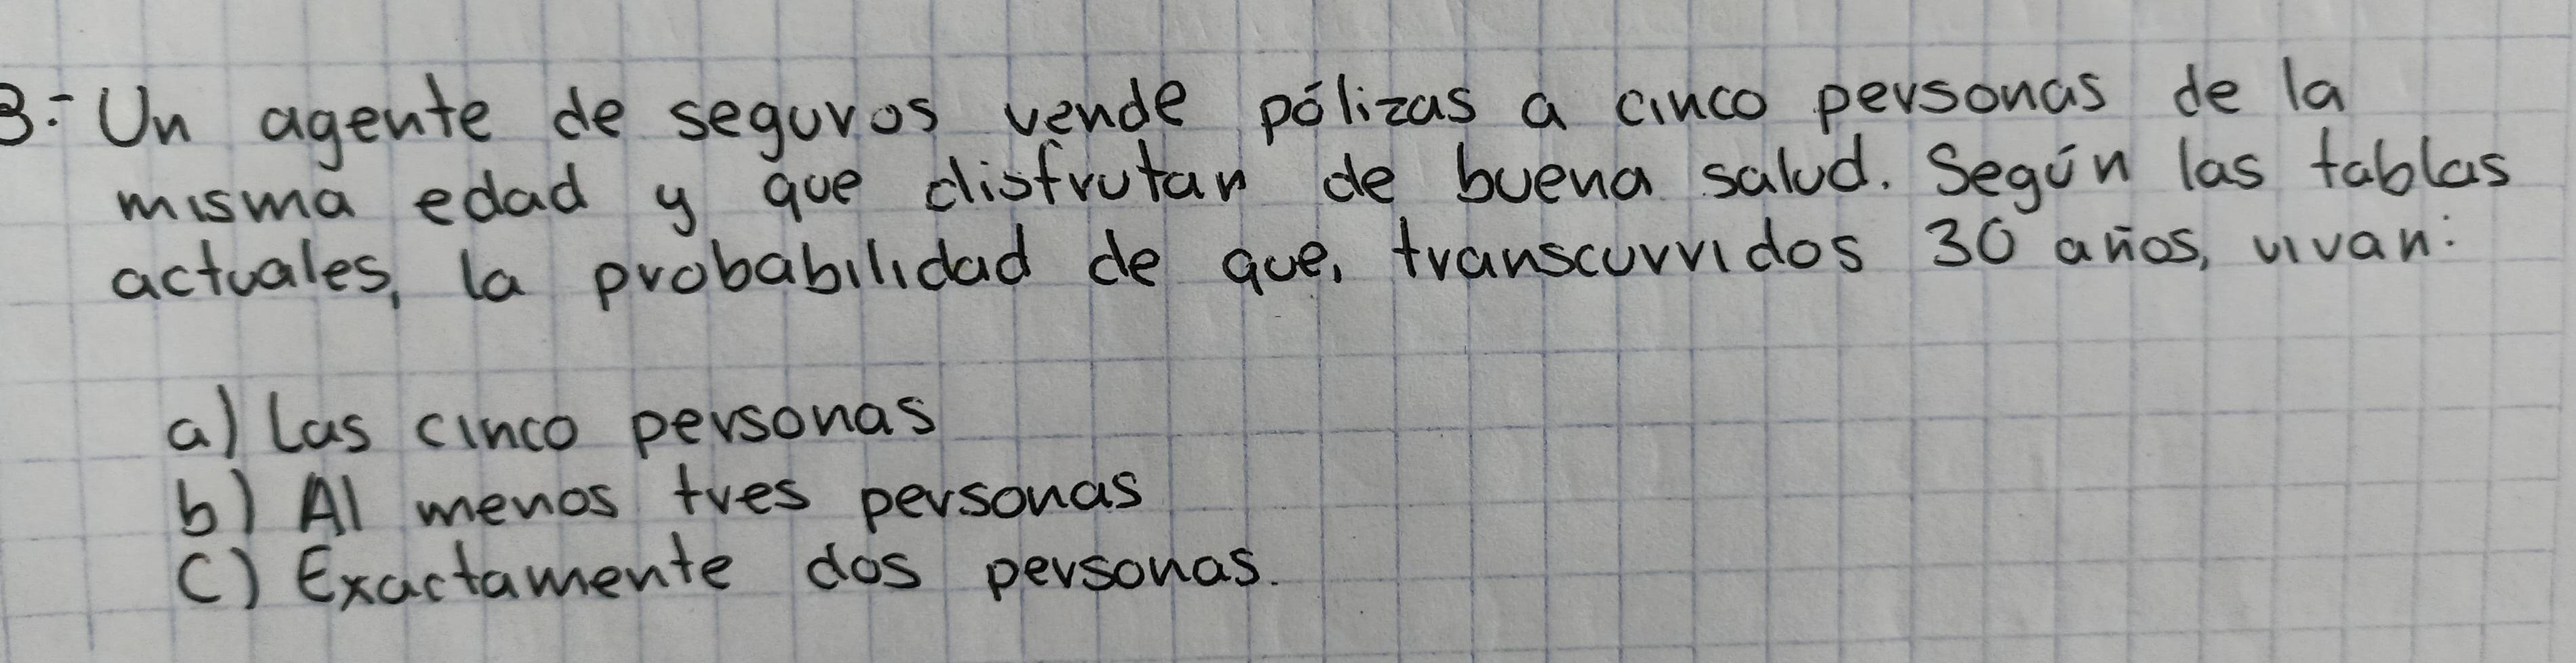 3.- Un agente de seguros vende pólizas a cinco personas de la
misma edad y que disfrutan de buena salud. Según las tablas
actuales, la probabilidad de que, transcurridos 30 años, vivan:
a) Las cinco personas
b) Al menos tres personas
C) Exactamente dos personas.